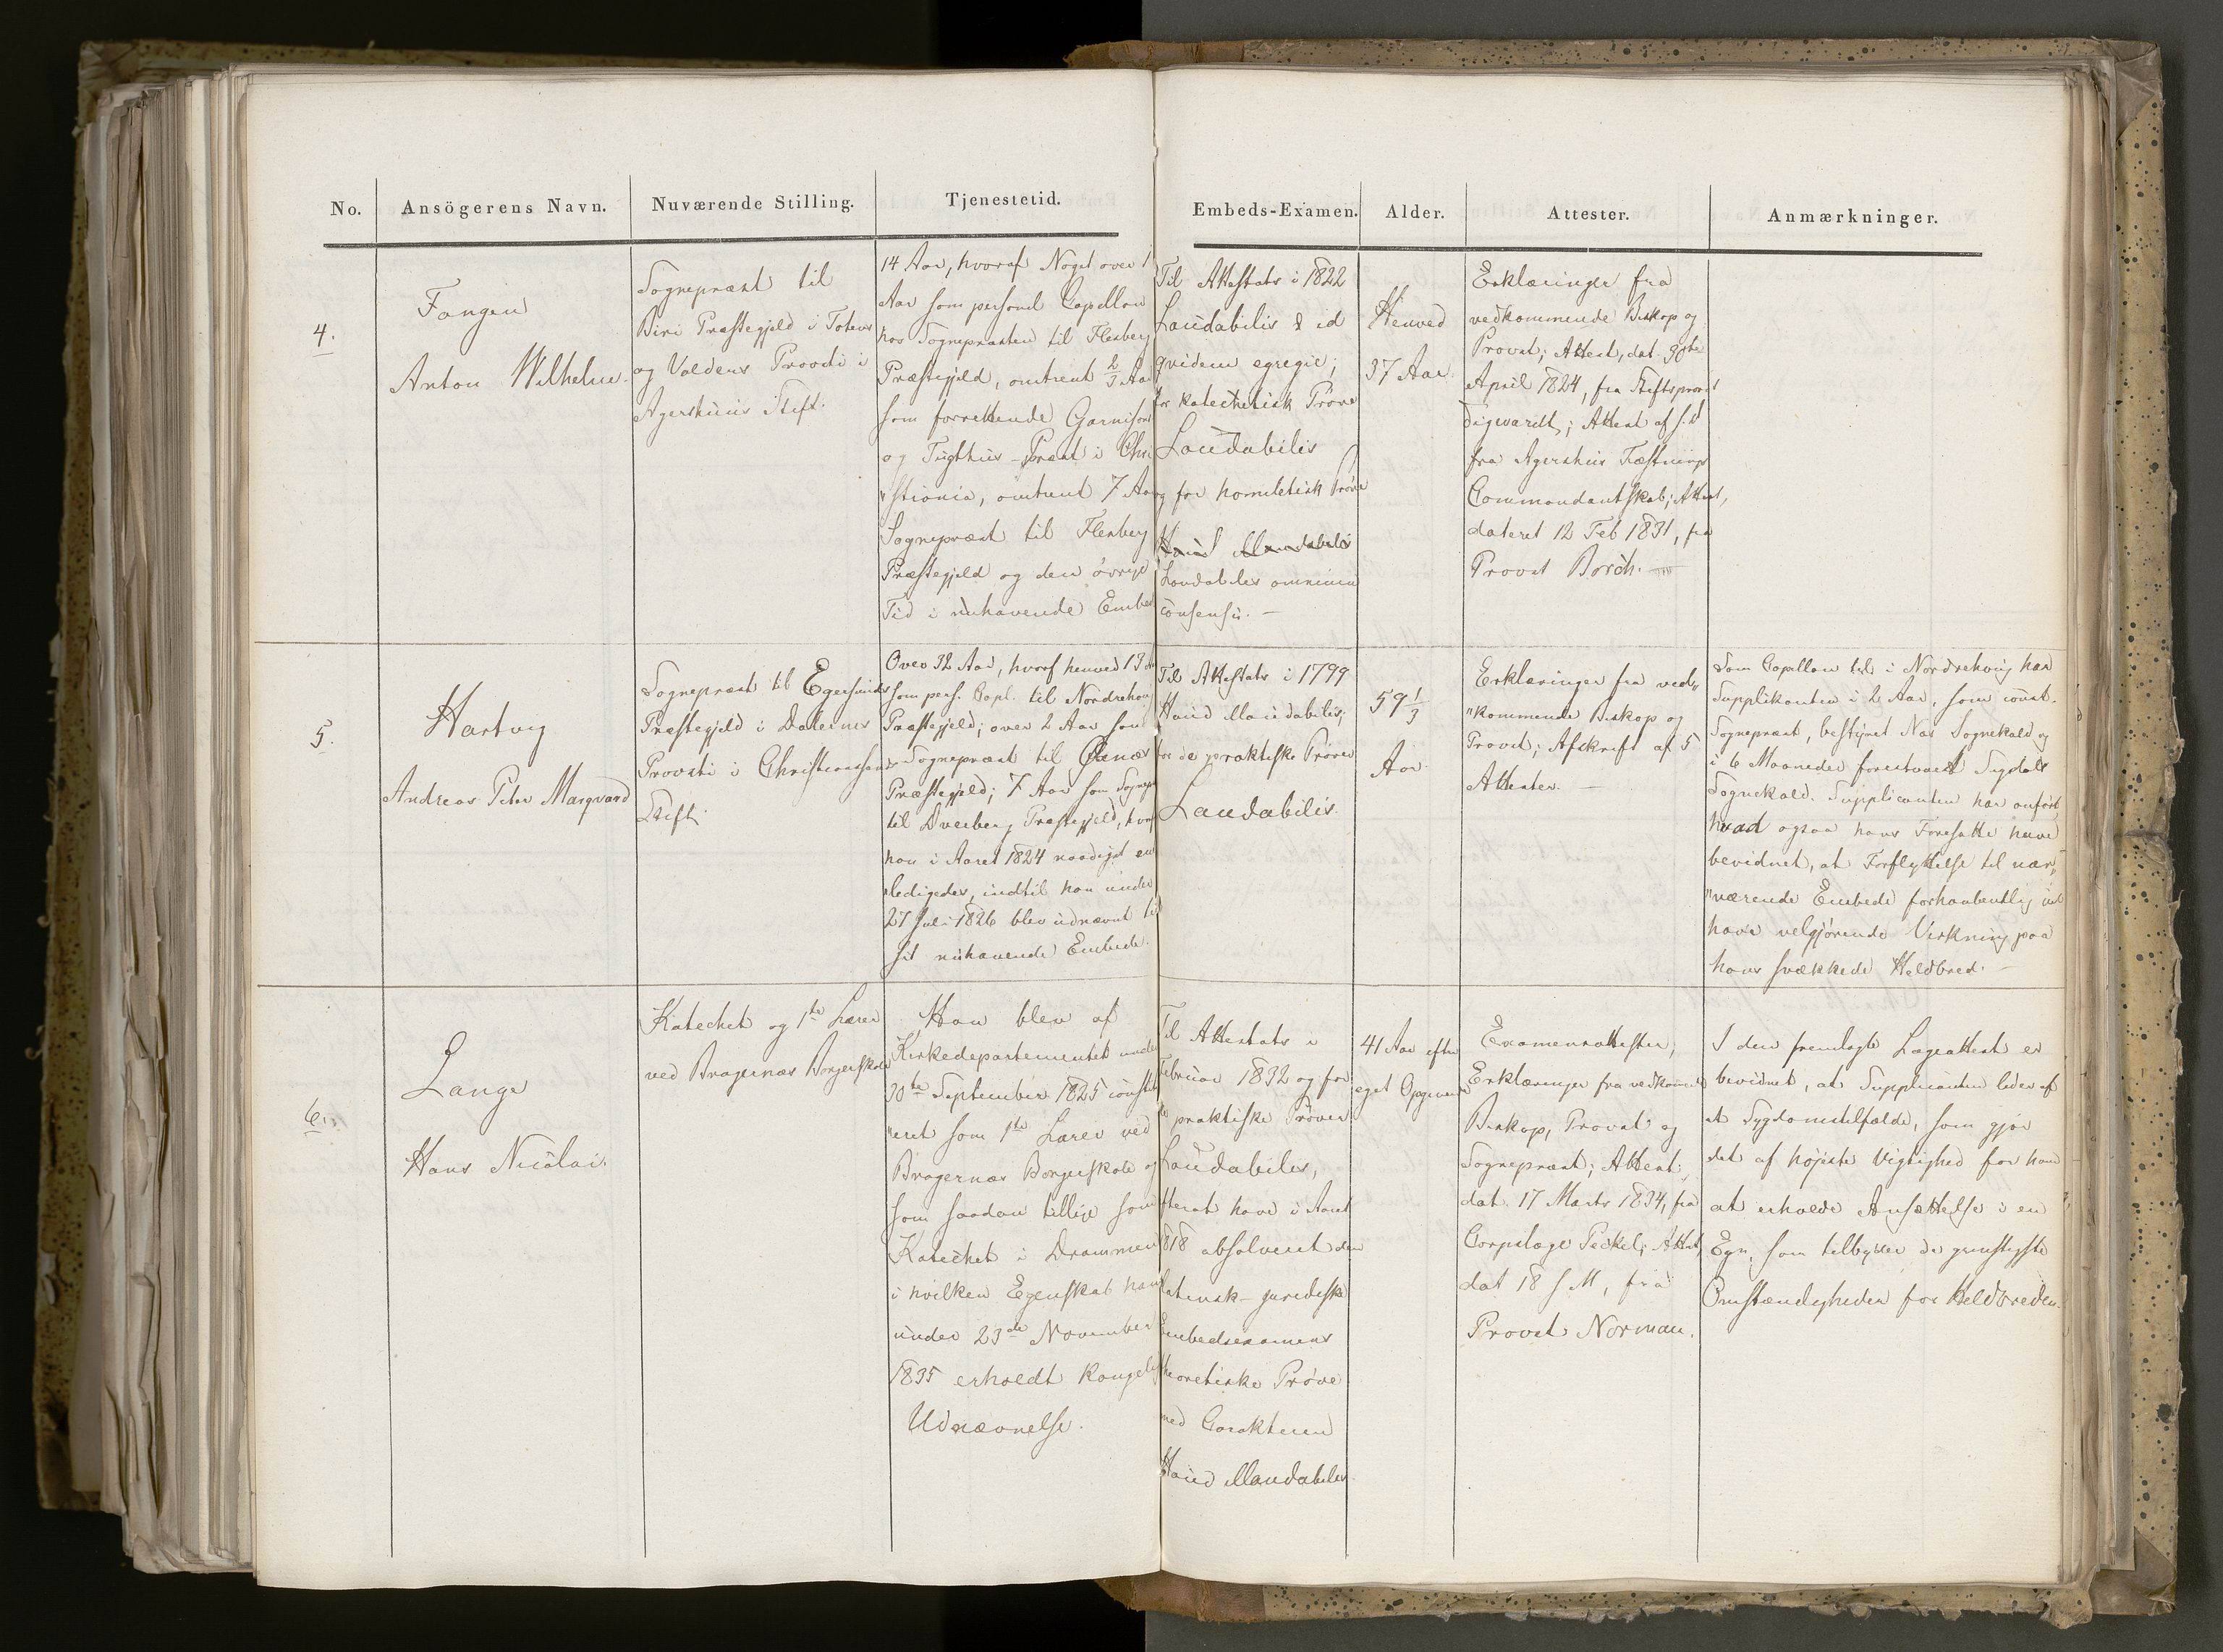 No.
Ansögerens Navn.
Nuværende Stilling.
Tjenestetid.
Embeds-Examen.
Alder.
Attester.
Anmærkninger.
4.
Fangen
Anton Wilhelm.
Sognepræst til
Biri Præstegjeld i Totens
og Valders Provsti i
Agershuus Stift.
14 Aar, hvoraf Noget over 1
Aar som personel Capellan
hos Sognepræsten til Flesberg
Præstegjeld, omtrent 2/3 Aar
som forrettende Garnisons
og Tugthus-Præst i Chri
"stiania, omtrent 7 Aar
Sognepræst til Flesberg
Præstegjeld og den övrige
Tid i nuhavende Embed
Til Attestats i 1822
Laudabilis & id
qvidem egregie;
for katechetisk Prøve
Laudabilis
og for homiletisk Prøve
Haud illaudabilis
Laudabilis omnium
consensu. —
Henved
37 Aar.
Erklæringer fra
vedkommende Biskop og
Provst; Attest, dat. 30te
April 1824, fra Stiftsprovst
Sigwardt; Attest af s. D
fra Agershuus Fæstnings
Commandantskab; Attest,
dateret 12 Feb 1831, fra
Provst Borch. —
5.
Hartvig
Andreas Peter Marqvard
Sognepræst til Egersunds
Præstegjeld i Dalernes
Provsti i Christianssands
Stift.
Over 32 Aar, hvoraf henved 13 Aar
som pers. Capl. til Nordrehoug
Præstegjeld; over 2 Aar som
Sognepræst til
Præstegjeld; 7 Aar som Sognepr
til Dverberg Præstegjeld, hvorf
han i Aaret 1824 naadigst ent
"ledigedes, indtil han under
27 Juli 1826 blev udnævnt til
sit nuhavende Embede.
Til Attestats i 1799
Haud illaudabilis;
for de praktiske Prøver
Laudabilis.
59 1/3
Aar
Erklæringer fra ved„
"kommende Biskop og
Provst; Afskrift af 5
Attester. —
Som Capellan til i Nordrehoug har
Supplikanten i 2 Aar, som const.
Sognepræst, bestyret Næs Sognekald og
i 6 Maaneder forestaaet Sigdals
Sognekald. Supplicanten har anført,
hvad ogsaa hans Foresatte have
bevidnet, at Forflyttelse til nær„
"værende Embede forhaabentlig vil
have velgjørende Virkning paa
hans svækkede Helbred. —
6.
Lange
Hans Nicolai.
Katechet og 1ste Lærer
ved Bragernæs Borgerskole
Han blev af
Kirkedepartementet under
30te September 1825 constitu
"eret som 1ste Lærer ved
Bragernæs Borgerskole og
som saadan tillige som
Katechet i Drammen
i hvilken Egenskab han
under 23de November
1835 erholdt kongelig
Udnævnelse.
Til Attestats i
Februar 1832 og for
de praktiske Prøver
Laudabilis,
efterat have i Aaret
1818 absolveret den
latinsk-juridiske
Embedsexamens
theoretiske Prøve
med Carakteren
Haud illaudabilis
41 Aar efter
eget Opgivende
Examensattester,
Erklæringer fra vedkommende
Biskop, Provst og
Sognepræst; Attest,
dat. 17 Marts 1834, fra
Corpslæge Peckel; Attest,
dat 18 s M, fra
Provst Norman.
I den fremlagte Lægeattest er
bevidnet, at Supplicanten lider af
et Sygdomstilfælde, som gjør
det af højeste Vigtighed for ham
at erholde Ansættelse i en
Egn, som tilbyder de gunstigste
Omstændigheder for Helbreden.